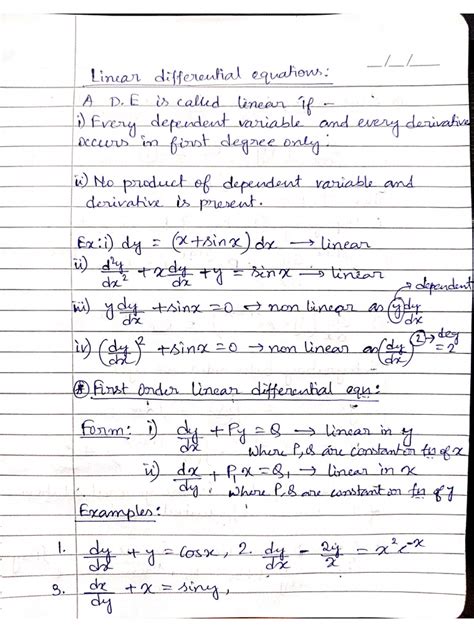 _/_/_
Linear differential equations:
A D.E is called linear if -
i) Every dependent variable and every derivative
occurs in first degree only.
ii) No product of dependent variable and
derivative is present.
Ex: i) dy = (x+sinx)dx → linear
ii) d²y/dx² + x dy/dx + y = sinx → linear
→ dependent
iii) y dy/dx + sinx = 0 → non linear as y dy/dx
iv) (dy/dx)² + sinx = 0 → non linear as (dy/dx)² → deg = 2
* First Order Linear differential eqn:
Form: i) dy/dx + Py = Q → linear in y
where P, Q are constant or fn of x
ii) dx/dy + P₁x = Q₁ → linear in x
where P, Q are constant or fn of y
Examples:
1. dy/dx + y = cosx, 2. dy/dx - 2y/x = x²e^-x
3. dx/dy + x = siny,